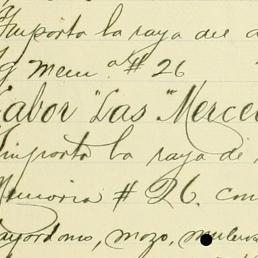 Importa la raya del
y Mem.ª # 26
Labor "Las" Merce
importa la raya de
Memoria # 26. con
ayordomo, mozo, muleros